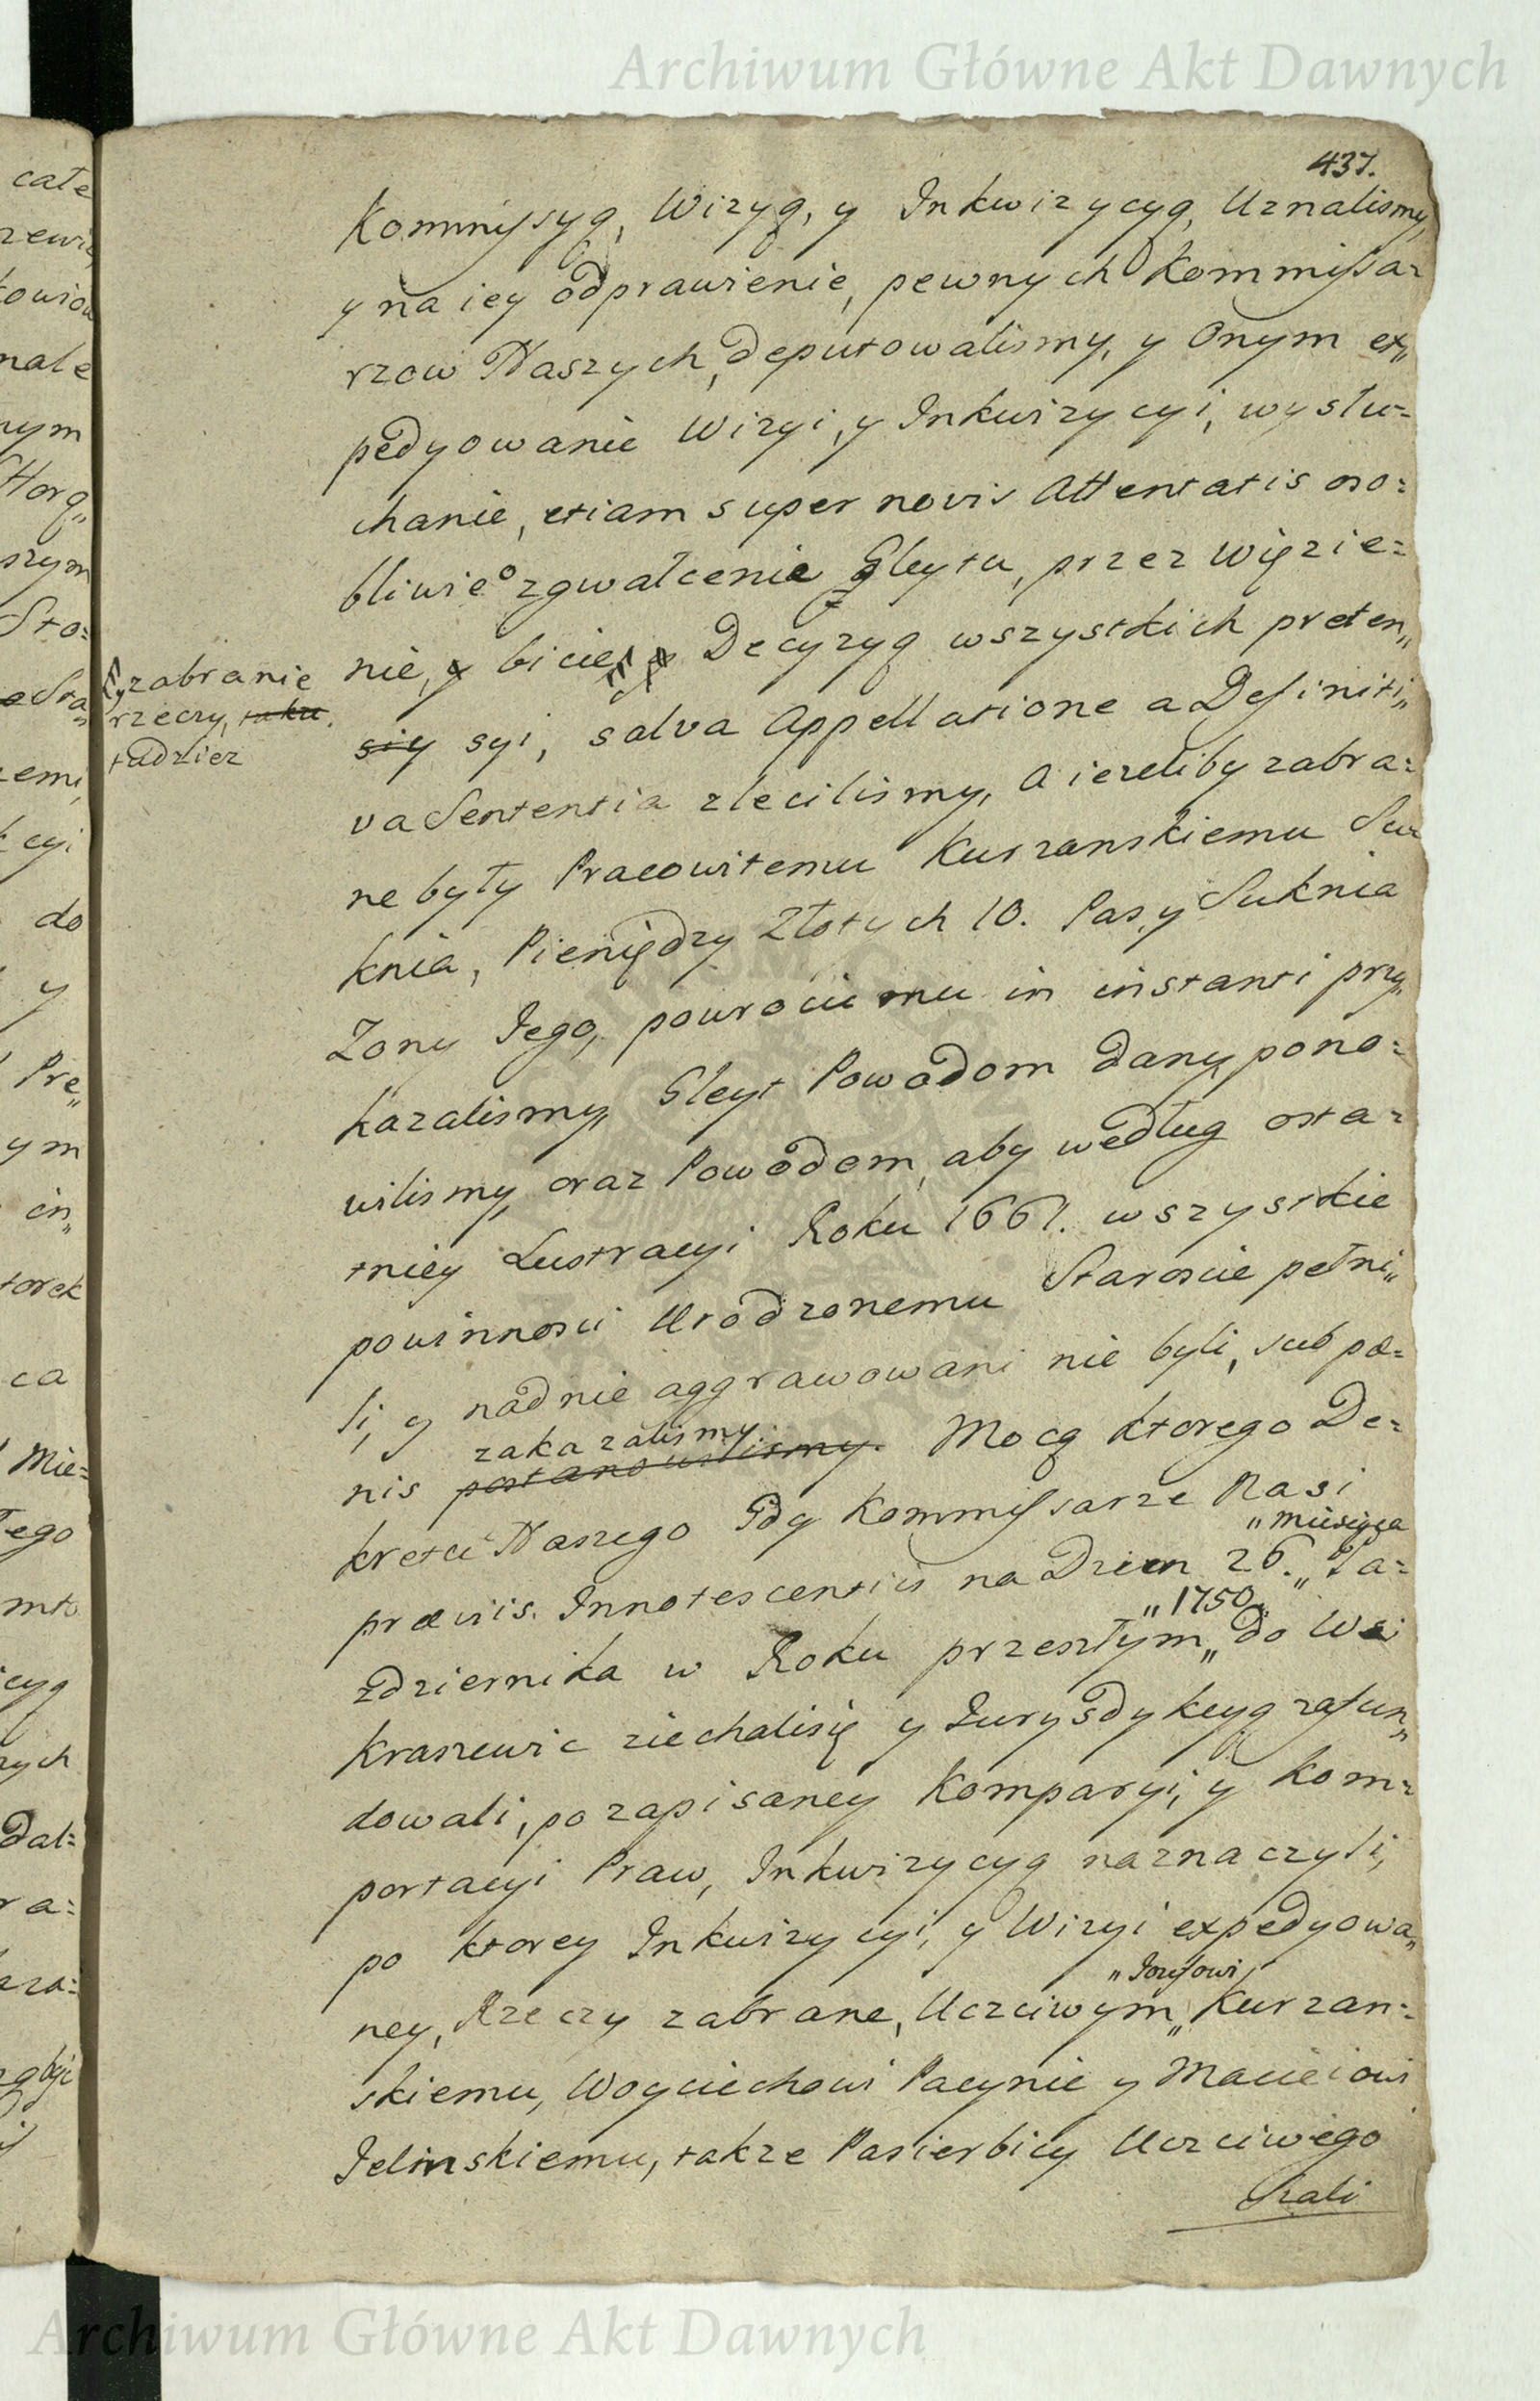 Archiwum Główne Akt Dawnych
437.
Kommyssyą, Wizyą, y Inkwizycyą, Uznalismy,
y na iey odprawienie, pewnych Kommissa=
rzow Naszych, deputowalismy, y Onym ex„
pedyowanie Wizyi, y Inkwizycyi, wysłu=
chanie, etiam super novis Attentatis oso=
bliwie o zgwałcenie Gleytu, przez więzie=
nie, y bicie, y Decyzyą wszystkich preten„
siy syi, salva Appellatione a Definiti„
va Sententia zlecilismy, A iezeliby zabra=
ne były Pracowitemu Kurzanskiemu Su=
knia, Pieniędzy Złotych 10. Pas, y Suknia
Zony Jego, powrocic mu in instanti przy„
kazalismy, Gleyt Powodom dany, pono=
wilismy, oraz Powodom, aby według osta=
tniey Lustracyi Roku 1661. wszystkie
powinnosci Urodzonemu Staroscie pełni„
li, y nad nie aggrawowani nie byli, sub pœ=
zakazalismy
nis postanowilismy. Mocą ktorego De=
kretu Naszego Gdy Kommyssarze Nasi
„miesiąca
præviis. Innotescentiis na Dzien 26.„ Pa=
„1750„
zdziernika w Roku przeszłym„ do Wsi
Kraszewic ziechalisię y Jurysdykcyą zafun„
dowali, po zapisaney Komparyi, y Kom=
portacyi Praw, Inkwizycyą naznaczyli,
po ktorey Inkwizycyi, y Wizyi expedyowa„
„Jozefowi
ney, Rzeczy zabrane, Uczciwym„ Kurzan=
skiemu, Woyciechowi Pacynie y Macieiowi
Jelinskiemu, takze Pasierbicy Uczciwego
Rali
y zabranie
rzeczy, taku.
tudziez
całe
nale
nym
szym
Sto=
zemi,
cyi
do
y
Pre„
ym
in„
torek
ca
Mie=
Tego
mto
icyą
nych
Dal=
ra=
Archiwum Główne Akt Dawnych